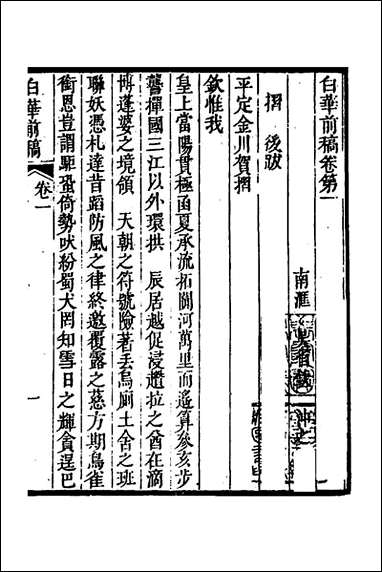 白華前稿卷第一
南滙 吳省欽 冲之
摺 後跋
平定金川賀摺
欽惟我
皇上當陽貫極函夏承流拓關河萬里而遙算豥亥步
讋撣國三江以外環拱 辰居越促浸趲拉之酋在滴
博蓬婆之境領 天朝之符號險著丟烏廁土舍之班
聯妖憑札達昔蹈防風之律終邀覆露之慈方期鳥雀
銜恩豈謂駏蛩倚勢吠紛蜀犬罔知雪日之輝貪逞巴
白華前稿 卷一 一